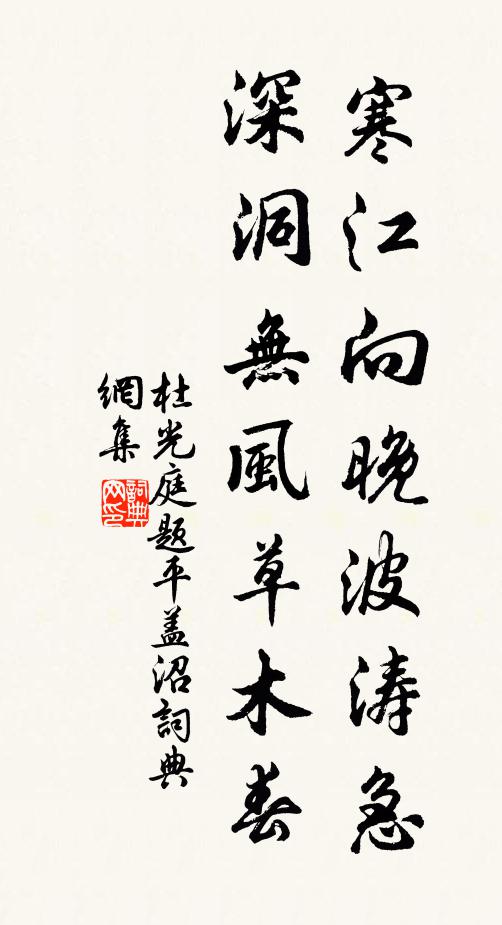 寒江向晚波涛急
深洞無風草木春
杜光庭题平盖沼詞典
網集
詞典
网印